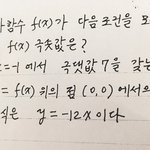 차함수 f(x)가 다음 조건을 모
f(x) 극솟값은?
x=-1 에서 극댓값 7을 갖는
= f(x) 위의 점 (0,0)에서의
식은 y=-12x 이다